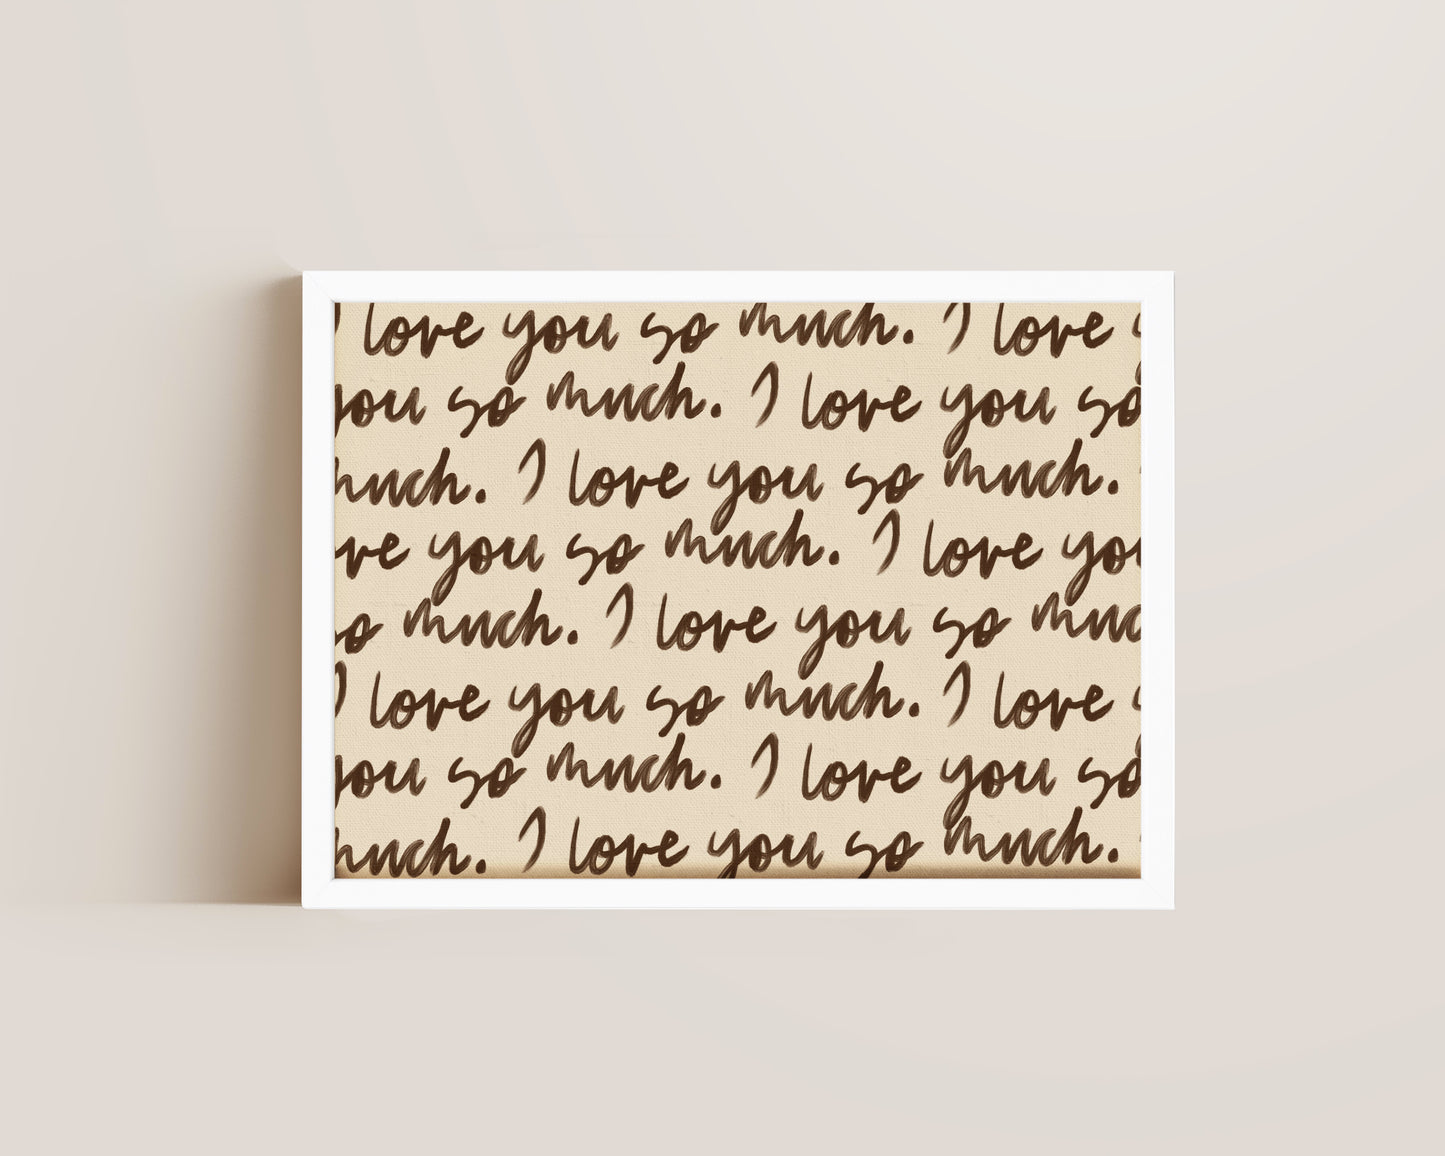 I love you so much. I love
you so much. I love you so
much. I love you so much.
love you so much. I love you
so much. I love you so much
I love you so much. I love
you so much. I love you so
much. I love you so much.